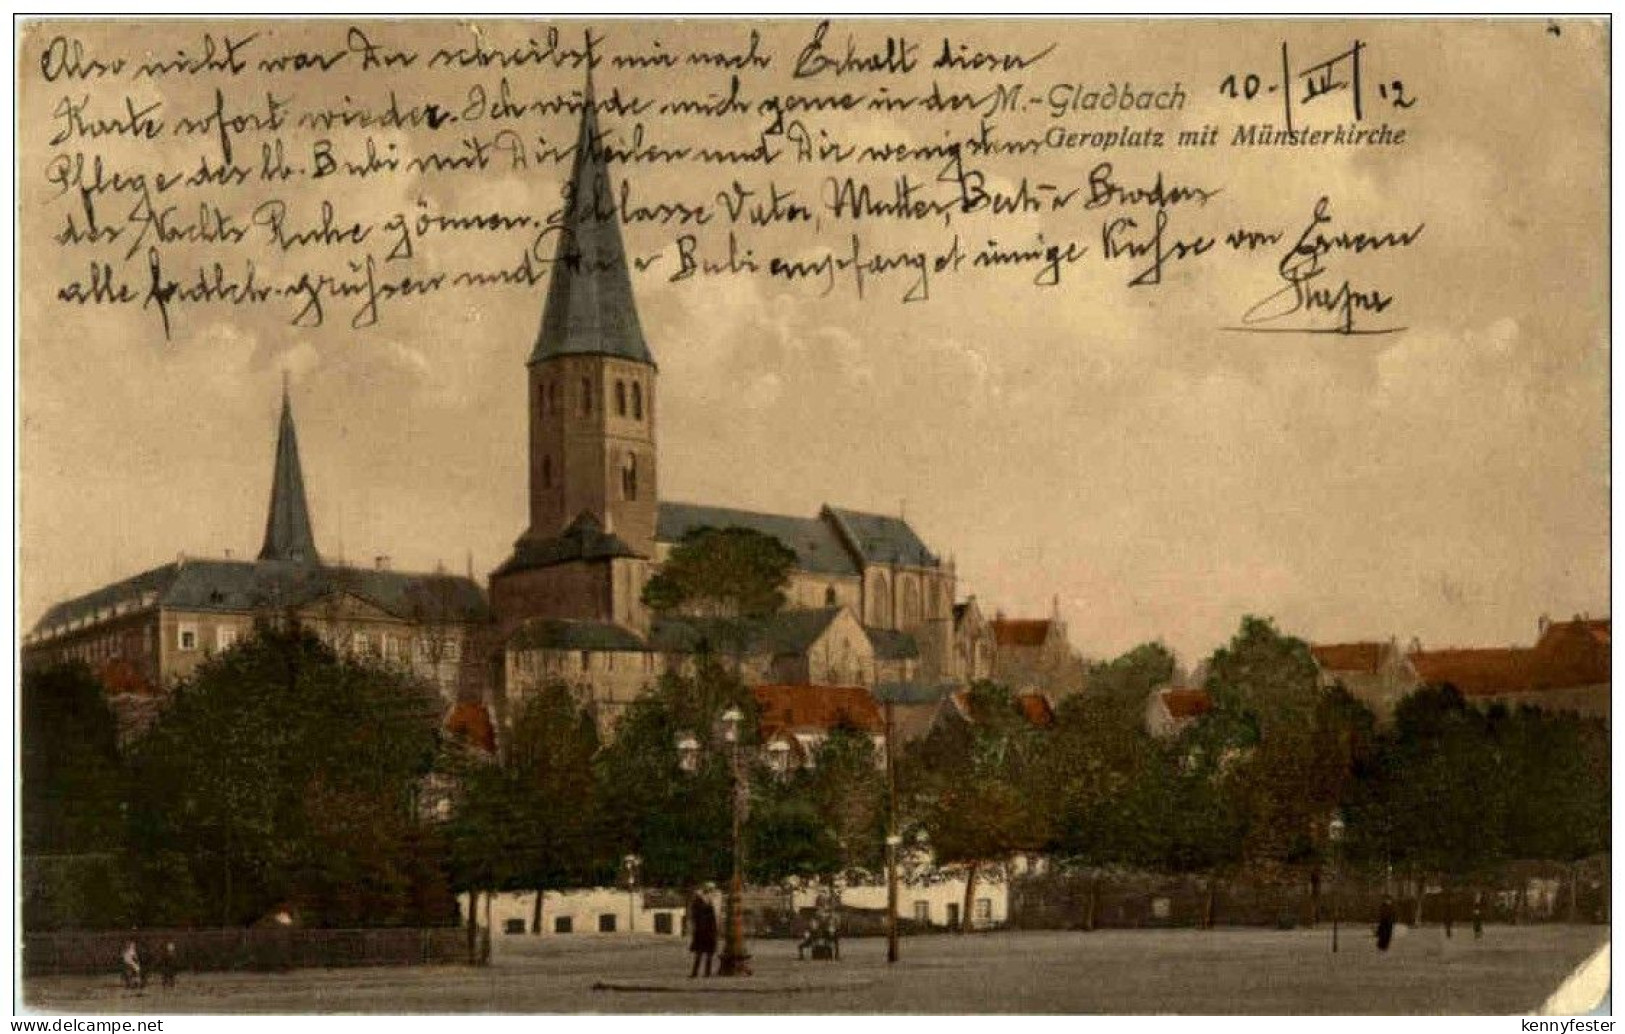 Also nicht war Du schreibst mir nach Erhalt dieser
Karte sofort wieder. Ich würde mich gerne in der
Pflege des lb. Bubi mit Dir teilen und Dir wenigstens
des Nachts Ruhe gönnen. Ich lasse Vater, Mutter, Berti u Bruder
alle grüßen und Bubi empfanget innige Küsse von
M.-Gladbach
Geroplatz mit Münsterkirche
10. / IV / 12
www.delcampe.net
kennyfester